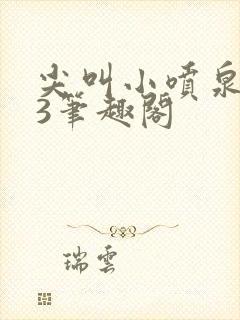 尖叫小喷泉
3筆趣閣
瑞雲